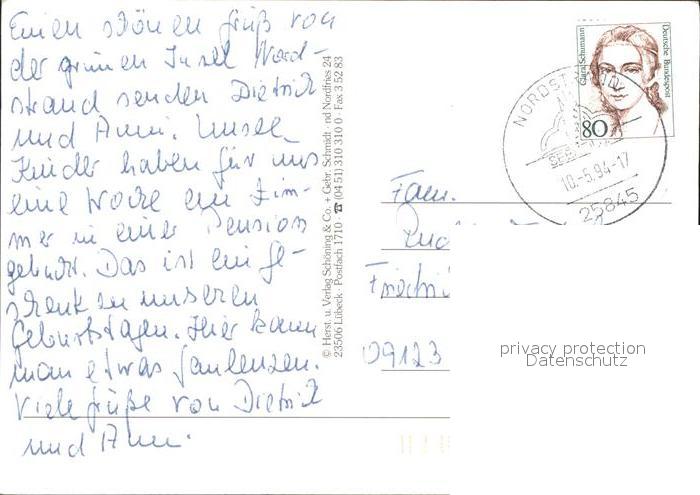 Einen schönen Gruß von
der grünen Insel Nord-
strand senden Dietrich
und Anni. Unsere
Kinder haben für uns
eine Woche ein Zim-
mer in einer Pension
gebucht. Das ist ein Ge-
schenk zu unseren
Geburtstagen. Hier kann
man etwas faulenzen.
Viele Grüße von Dietrich
und Anni.
© Herst. u. Verlag Schöning & Co. + Gebr. Schmidt · nd Nordfries 24
23506 Lübeck · Postfach 1710 · ☎ (04 51) 310 310 0 · Fax 3 52 83
Clara Schumann
Deutsche Bundespost
80
NORDSTRAND
10.-5.94-17
25845
Fam.
09123
privacy protection
Datenschutz